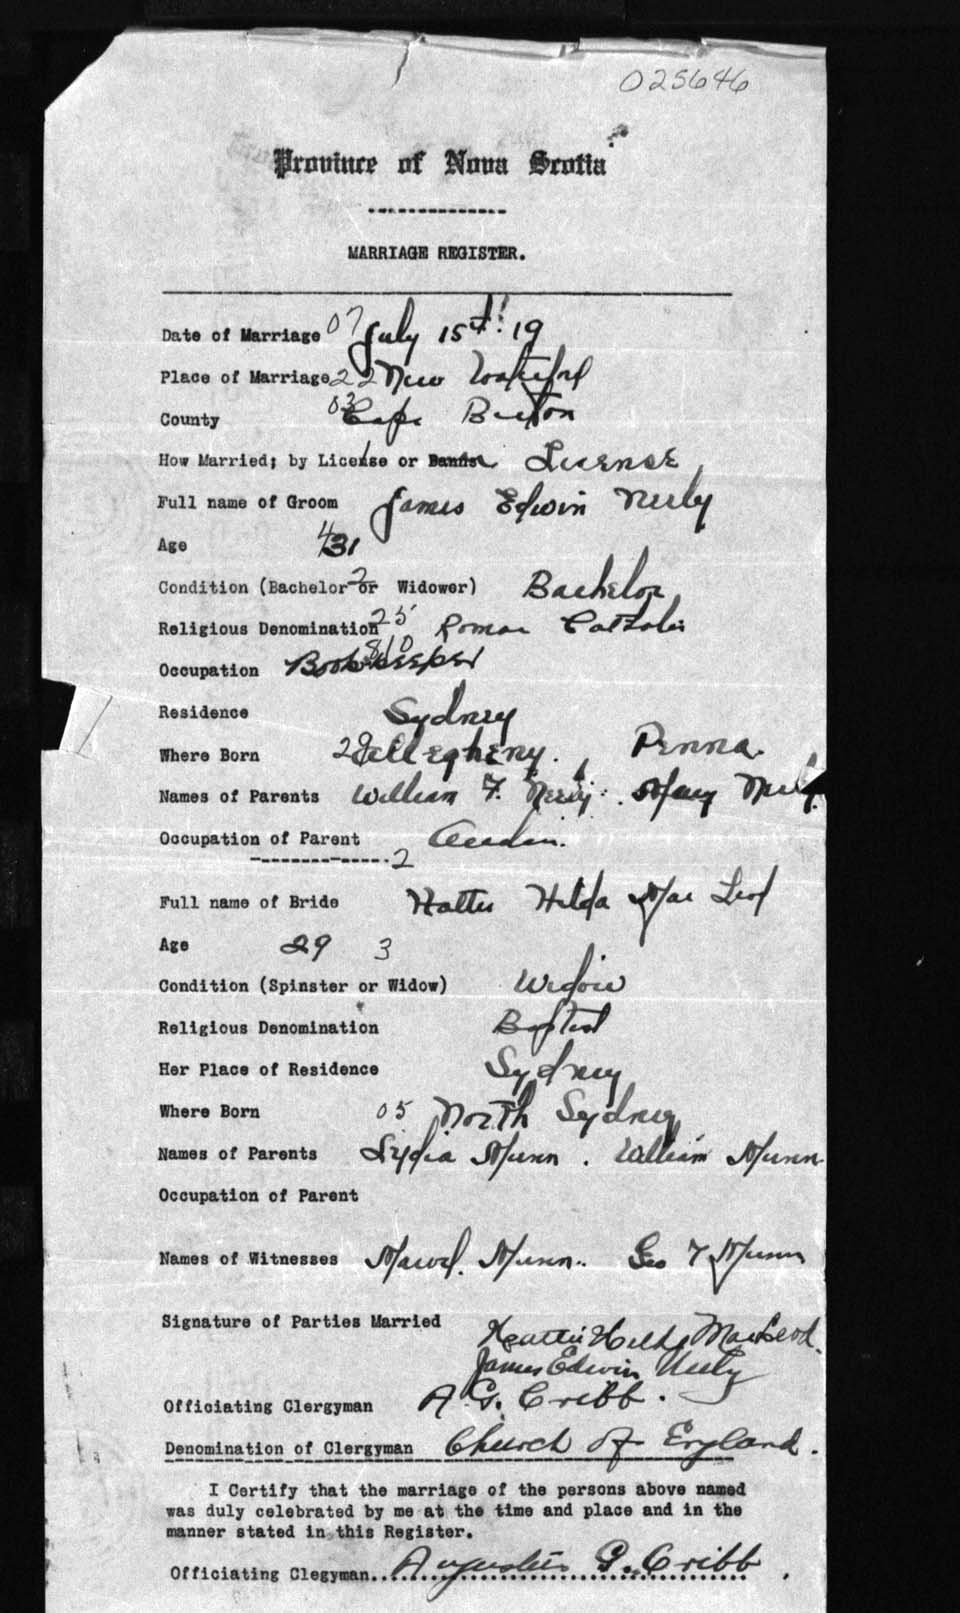 025646
Province of Nova Scotia
MARRIAGE REGISTER.
Date of Marriage 07 July 15th 19
Place of Marriage 22 New Waterford
County 03 Cape Breton
How Married; by License or Banns License
Full name of Groom James Edwin Neely
Age 4 31
Condition (Bachelor or Widower) 2 Bachelor
Religious Denomination 25 Roman Catholic
Occupation Bookkeeper 810
Residence Sydney
Where Born 29 Allegheny. Penna.
Names of Parents William F. Neely. Mary Neely.
Occupation of Parent
2
Full name of Bride Hattie Hilda MacLeod
Age 29 3
Condition (Spinster or Widow) Widow
Religious Denomination Baptist
Her Place of Residence Sydney
Where Born 05 North Sydney
Names of Parents Lydia Munn. William Munn.
Occupation of Parent
Names of Witnesses Munn. Geo F Munn
Signature of Parties Married
Hattie Hilda MacLeod.
James Edwin Neely
Officiating Clergyman A. G. Cribb.
Denomination of Clergyman Church of England.
I Certify that the marriage of the persons above named
was duly celebrated by me at the time and place and in the
manner stated in this Register.
Officiating Clegyman. Augustus G. Cribb.